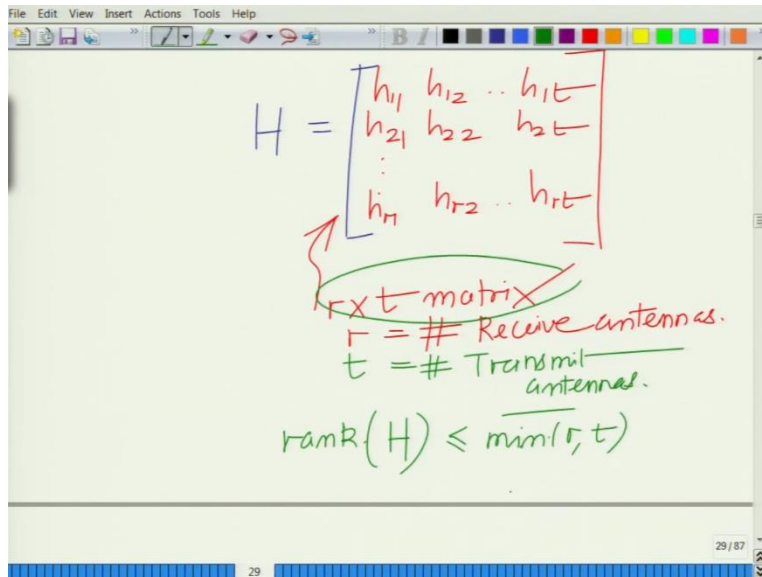 File Edit View Insert Actions Tools Help
B I
H = [ h₁₁ h₁₂ .. h₁t
h₂₁ h₂₂ h₂t
:
hᵣ₁ hᵣ₂ .. hᵣt ]
r x t matrix
r = # Receive antennas.
t = # Transmit
antennas.
rank(H) ≤ min(r, t)
29/87
29